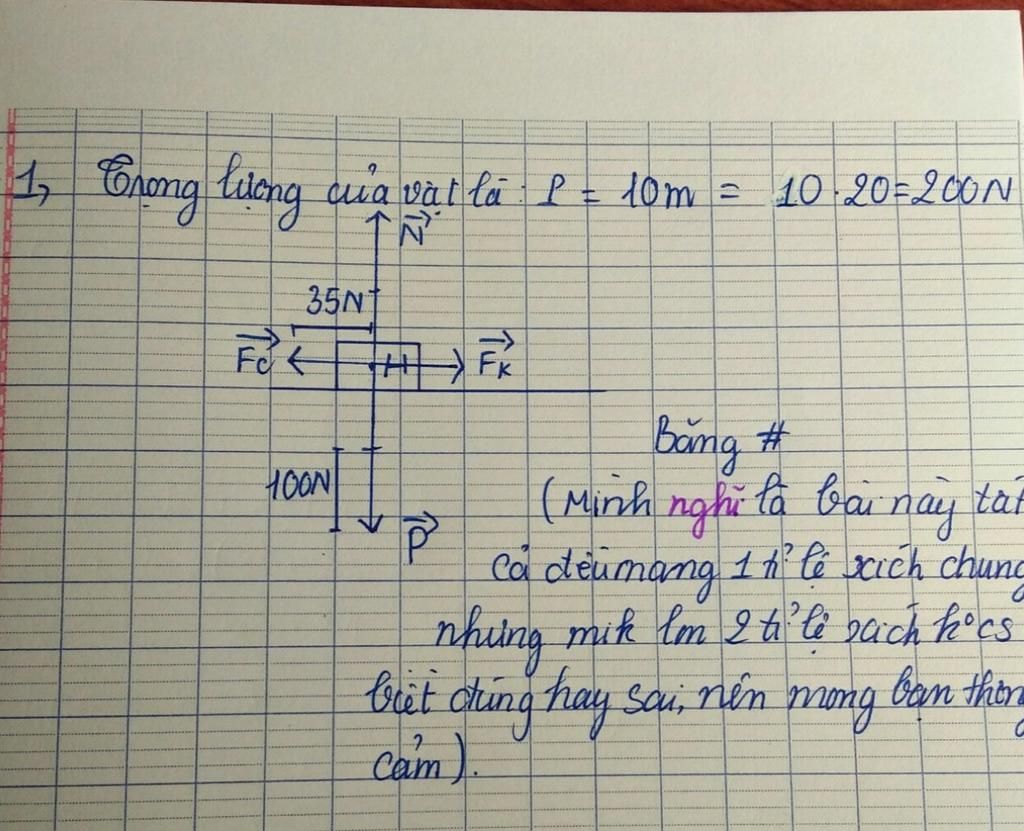 1, Trọng lượng của vật là: P = 10m = 10.20=200N
N
35N
Fc Fk
100N
P
Băng #
(Mình nghĩ là bài này tất
cả đều mang 1 tỉ lệ xích chung
nhưng mik lm 2 tỉ lệ xích k°cs
biết đúng hay sai, nên mong bạn thông
cảm).